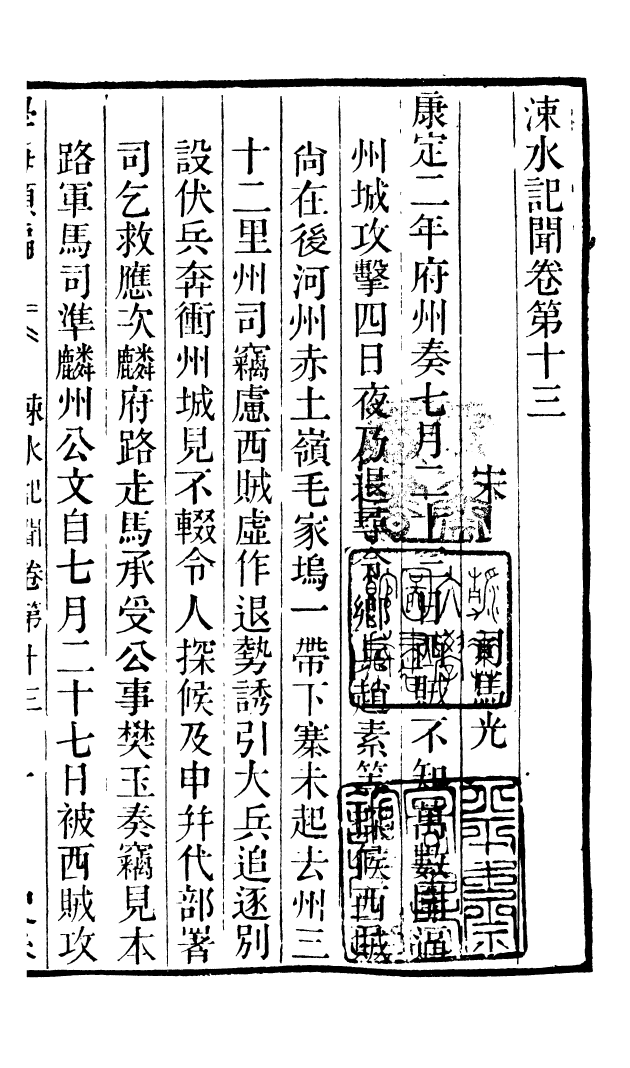 涑水記聞卷第十三
宋 司馬光
康定二年府州奏七月二十三日西賊不知萬數圍逼
州城攻擊四日夜乃退尋令鄉兵趙素等探候西賊
尙在後河州赤土嶺毛家塢一帶下寨未起去州三
十二里州司竊慮西賊虛作退勢誘引大兵追逐別
設伏兵奔衝州城見不輟令人探候及申幷代部署
司乞救應次麟府路走馬承受公事樊玉奏竊見本
路軍馬司準麟州公文自七月二十七日被西賊攻
涑水記聞卷第十三 一